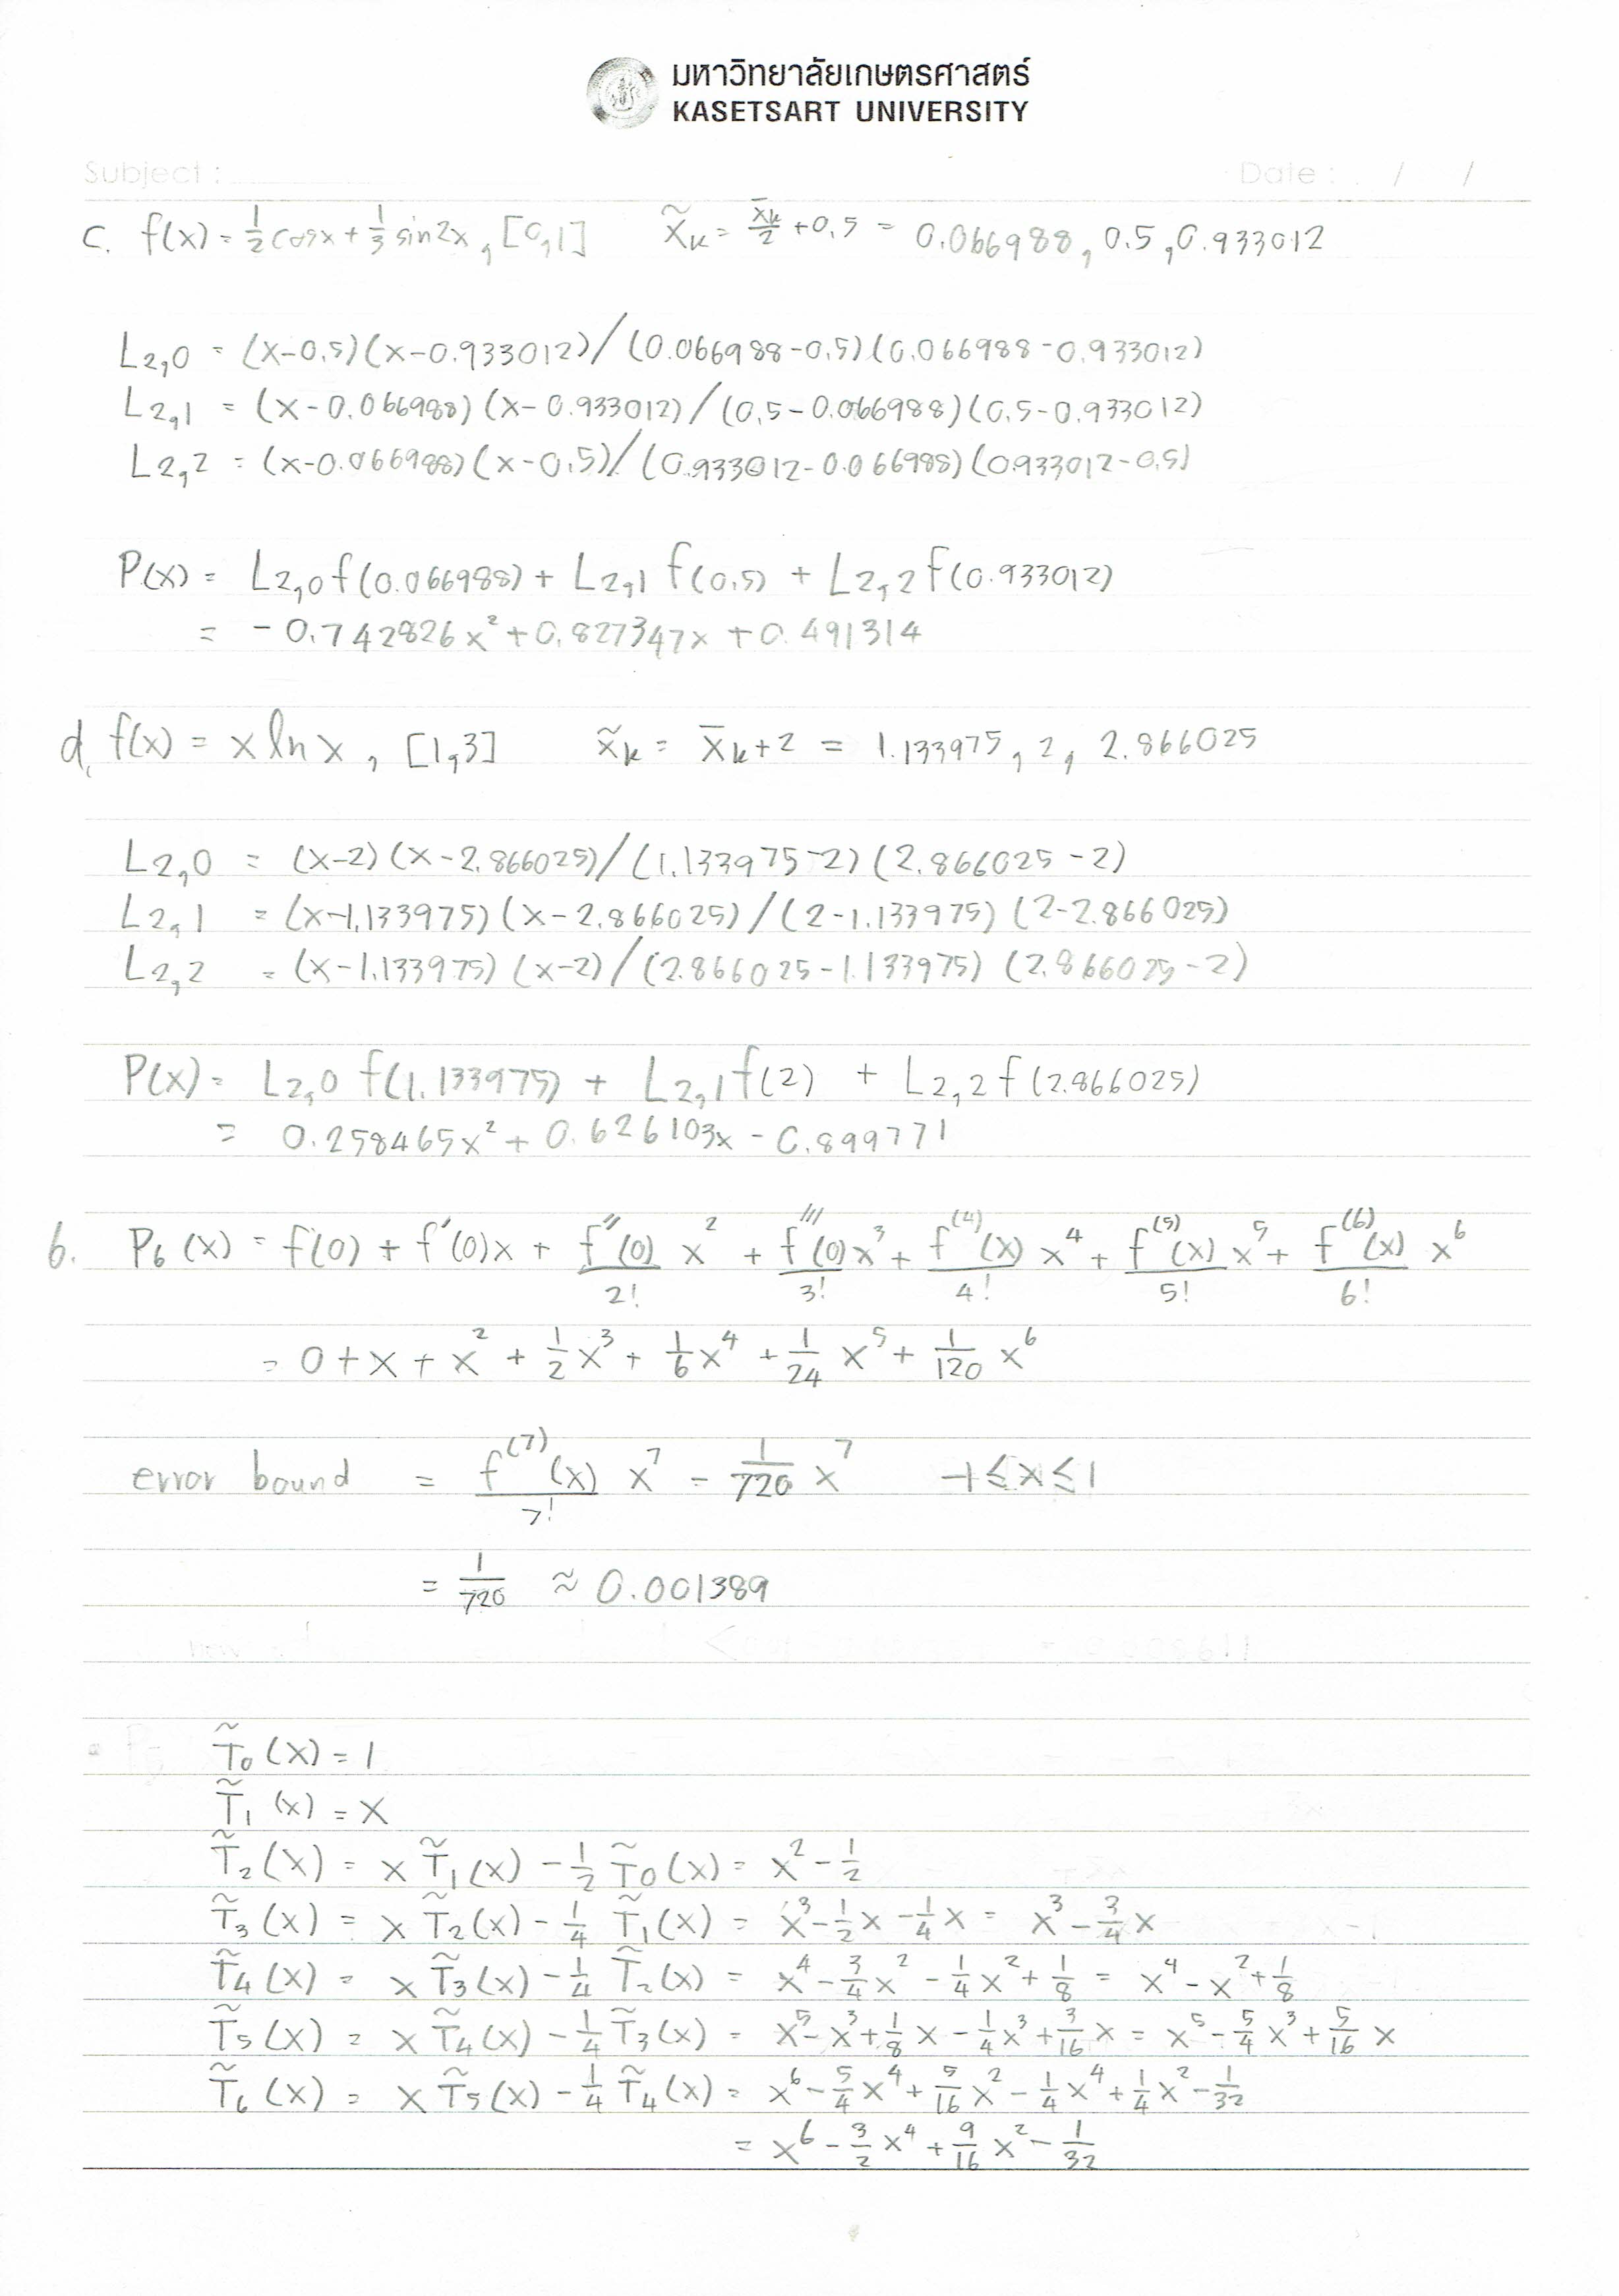 มหาวิทยาลัยเกษตรศาสตร์
KASETSART UNIVERSITY
Subject : Date : / /
c. f(x) = 1/2 cosx + 1/3 sin2x, [0,1] x̃k = x̄k/2 + 0.5 = 0.066988, 0.5, 0.933012
L2,0 = (x-0.5)(x-0.933012)/(0.066988-0.5)(0.066988-0.933012)
L2,1 = (x-0.066988)(x-0.933012)/(0.5-0.066988)(0.5-0.933012)
L2,2 = (x-0.066988)(x-0.5)/(0.933012-0.066988)(0.933012-0.5)
P(x) = L2,0 f(0.066988) + L2,1 f(0.5) + L2,2 f(0.933012)
= -0.742826x² + 0.827347x + 0.491314
d. f(x) = x ln x, [1,3] x̃k = x̄k+2 = 1.133975, 2, 2.866025
L2,0 = (x-2)(x-2.866025)/(1.133975-2)(2.866025-2)
L2,1 = (x-1.133975)(x-2.866025)/(2-1.133975)(2-2.866025)
L2,2 = (x-1.133975)(x-2)/(2.866025-1.133975)(2.866025-2)
P(x) = L2,0 f(1.133975) + L2,1 f(2) + L2,2 f(2.866025)
= 0.258465x² + 0.626103x - 0.899771
6. P6(x) = f(0) + f′(0)x + f″(0)/2! x² + f‴(0)/3! x³ + f⁽⁴⁾(x)/4! x⁴ + f⁽⁵⁾(x)/5! x⁵ + f⁽⁶⁾(x)/6! x⁶
= 0 + x + x² + 1/2 x³ + 1/6 x⁴ + 1/24 x⁵ + 1/120 x⁶
error bound = f⁽⁷⁾(x)/7! x⁷ = 1/720 x⁷ -1 ≤ x ≤ 1
= 1/720 ≈ 0.001389
T̃0(x) = 1
T̃1(x) = x
T̃2(x) = x T̃1(x) - 1/2 T̃0(x) = x² - 1/2
T̃3(x) = x T̃2(x) - 1/4 T̃1(x) = x³ - 1/2 x - 1/4 x = x³ - 3/4 x
T̃4(x) = x T̃3(x) - 1/4 T̃2(x) = x⁴ - 3/4 x² - 1/4 x² + 1/8 = x⁴ - x² + 1/8
T̃5(x) = x T̃4(x) - 1/4 T̃3(x) = x⁵ - x³ + 1/8 x - 1/4 x³ + 3/16 x = x⁵ - 5/4 x³ + 5/16 x
T̃6(x) = x T̃5(x) - 1/4 T̃4(x) = x⁶ - 5/4 x⁴ + 5/16 x² - 1/4 x⁴ + 1/4 x² - 1/32
= x⁶ - 3/2 x⁴ + 9/16 x² - 1/32